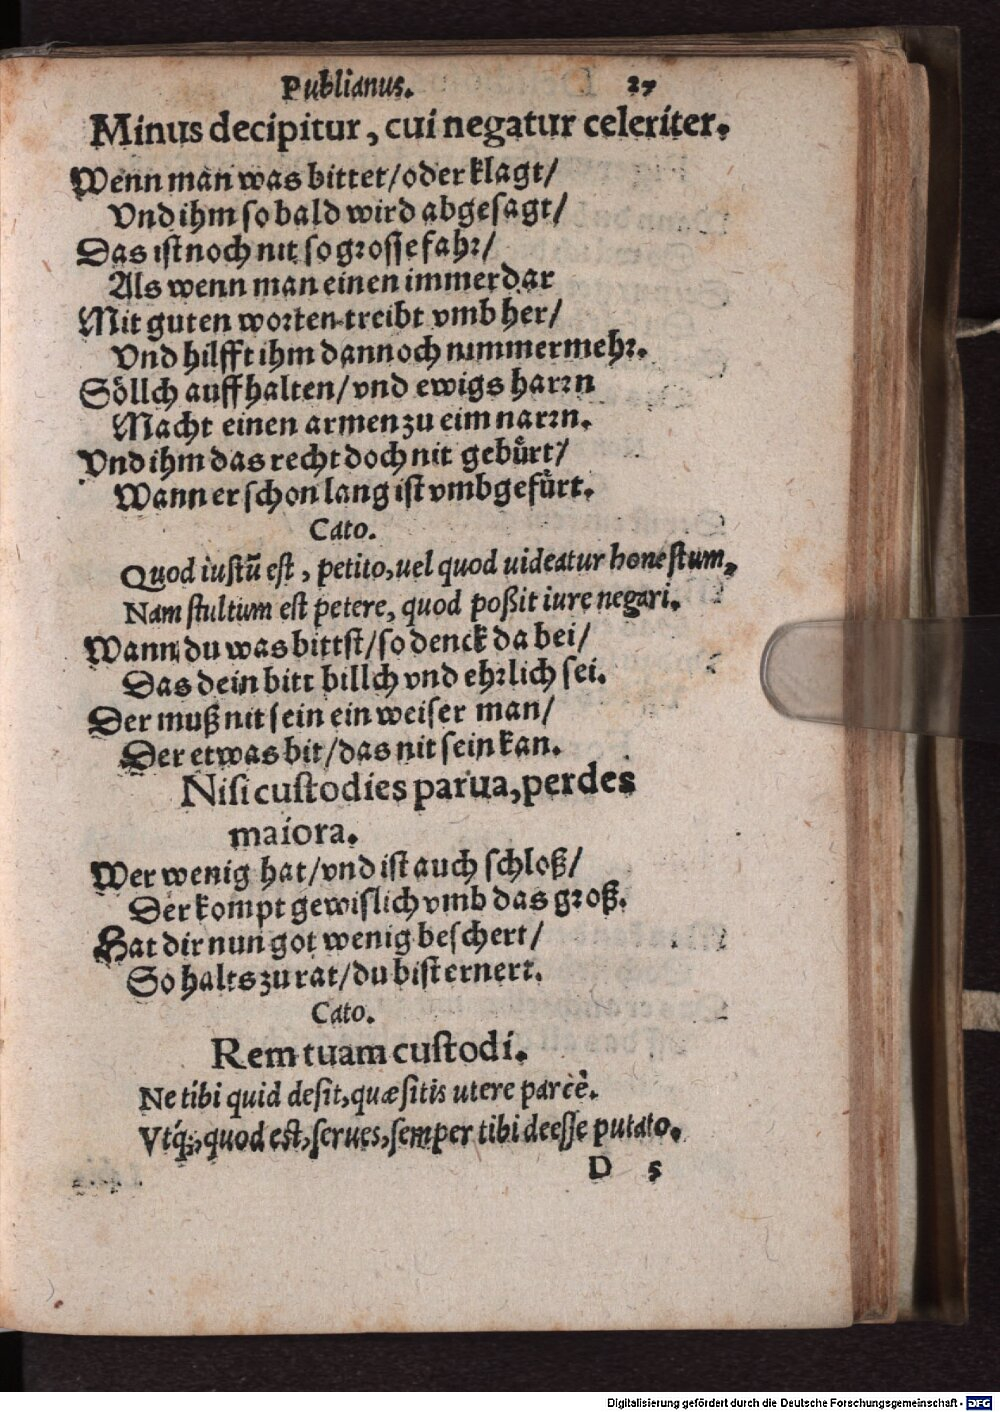 Publianus. 27
Minus decipitur, cui negatur celeriter.
Wenn man was bittet/oder klagt/
Vnd ihm so bald wird abgesagt/
Das ist noch nit so grosse fahr/
Als wenn man einen immerdar
Mit guten worten treibt vmb her/
Vnd hilfft ihm dannoch nimmermehr.
Söllch auffhalten/vnd ewigs harrn
Macht einen armen zu eim narrn.
Vnd ihm das recht doch nit gebürt/
Wann er schon lang ist vmbgefürt.
Cato.
Quod iustū est, petito, uel quod uideatur honestum,
Nam stultum est petere, quod poßit iure negari.
Wann du was bittst/so denck da bei/
Das dein bitt billch vnd ehrlich sei.
Der muß nit sein ein weiser man/
Der etwas bit/das nit sein kan.
Nisi custodies parua, perdes
maiora.
Wer wenig hat/vnd ist auch schloß/
Der kompt gewislich vmb das groß.
Hat dir nun got wenig beschert/
So halts zu rat/du bist ernert.
Cato.
Rem tuam custodi.
Ne tibi quid desit, quæsitis utere parcè.
Vtq́;, quod est, serues, semper tibi deesse putato.
D 5
Digitalisierung gefördert durch die Deutsche Forschungsgemeinschaft - DFG